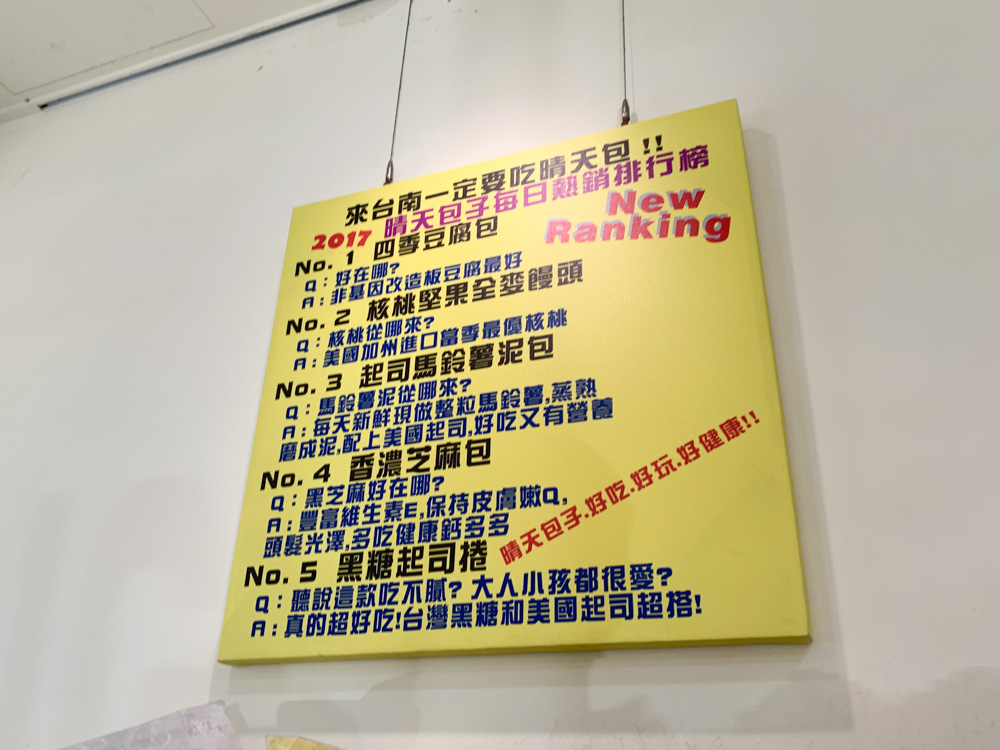 來台南一定要吃晴天包!!
2017 晴天包子每日熱銷排行榜
New
Ranking
No. 1 四季豆腐包
Q:好在哪?
A:非基因改造板豆腐最好
No. 2 核桃堅果全麥饅頭
Q:核桃從哪來?
A:美國加州進口當季最優核桃
No. 3 起司馬鈴薯泥包
Q:馬鈴薯泥從哪來?
A:每天新鮮現做整粒馬鈴薯,蒸熟
磨成泥,配上美國起司,好吃又有營養
No. 4 香濃芝麻包
Q:黑芝麻好在哪?
A:豐富維生素E,保持皮膚嫩Q,
頭髮光澤,多吃健康鈣多多
晴天包子.好吃.好玩.好健康!!
No. 5 黑糖起司捲
Q:聽說這款吃不膩?大人小孩都很愛?
A:真的超好吃!台灣黑糖和美國起司超搭!